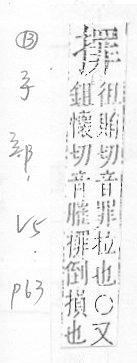 徂賄切音罪拉也○又
鉏懷切音膗倒損也
⑬ 手部, V5. p63